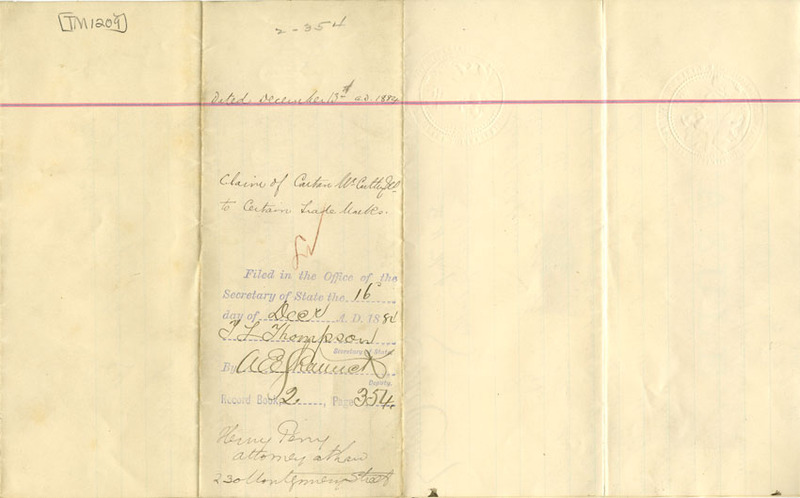 TM1209
2-354
Dated December 13th A.D. 1884
Claim of McCutty &
to Certain Trade Marks.
Filed in the Office of the
Secretary of State the 16
day of Decr A. D. 1884
T L Thompson
Secretary of State
By A E
Deputy.
Record Book 2. , Page 354.
Henry Perry
attorney at Law
230 Montgomery Street